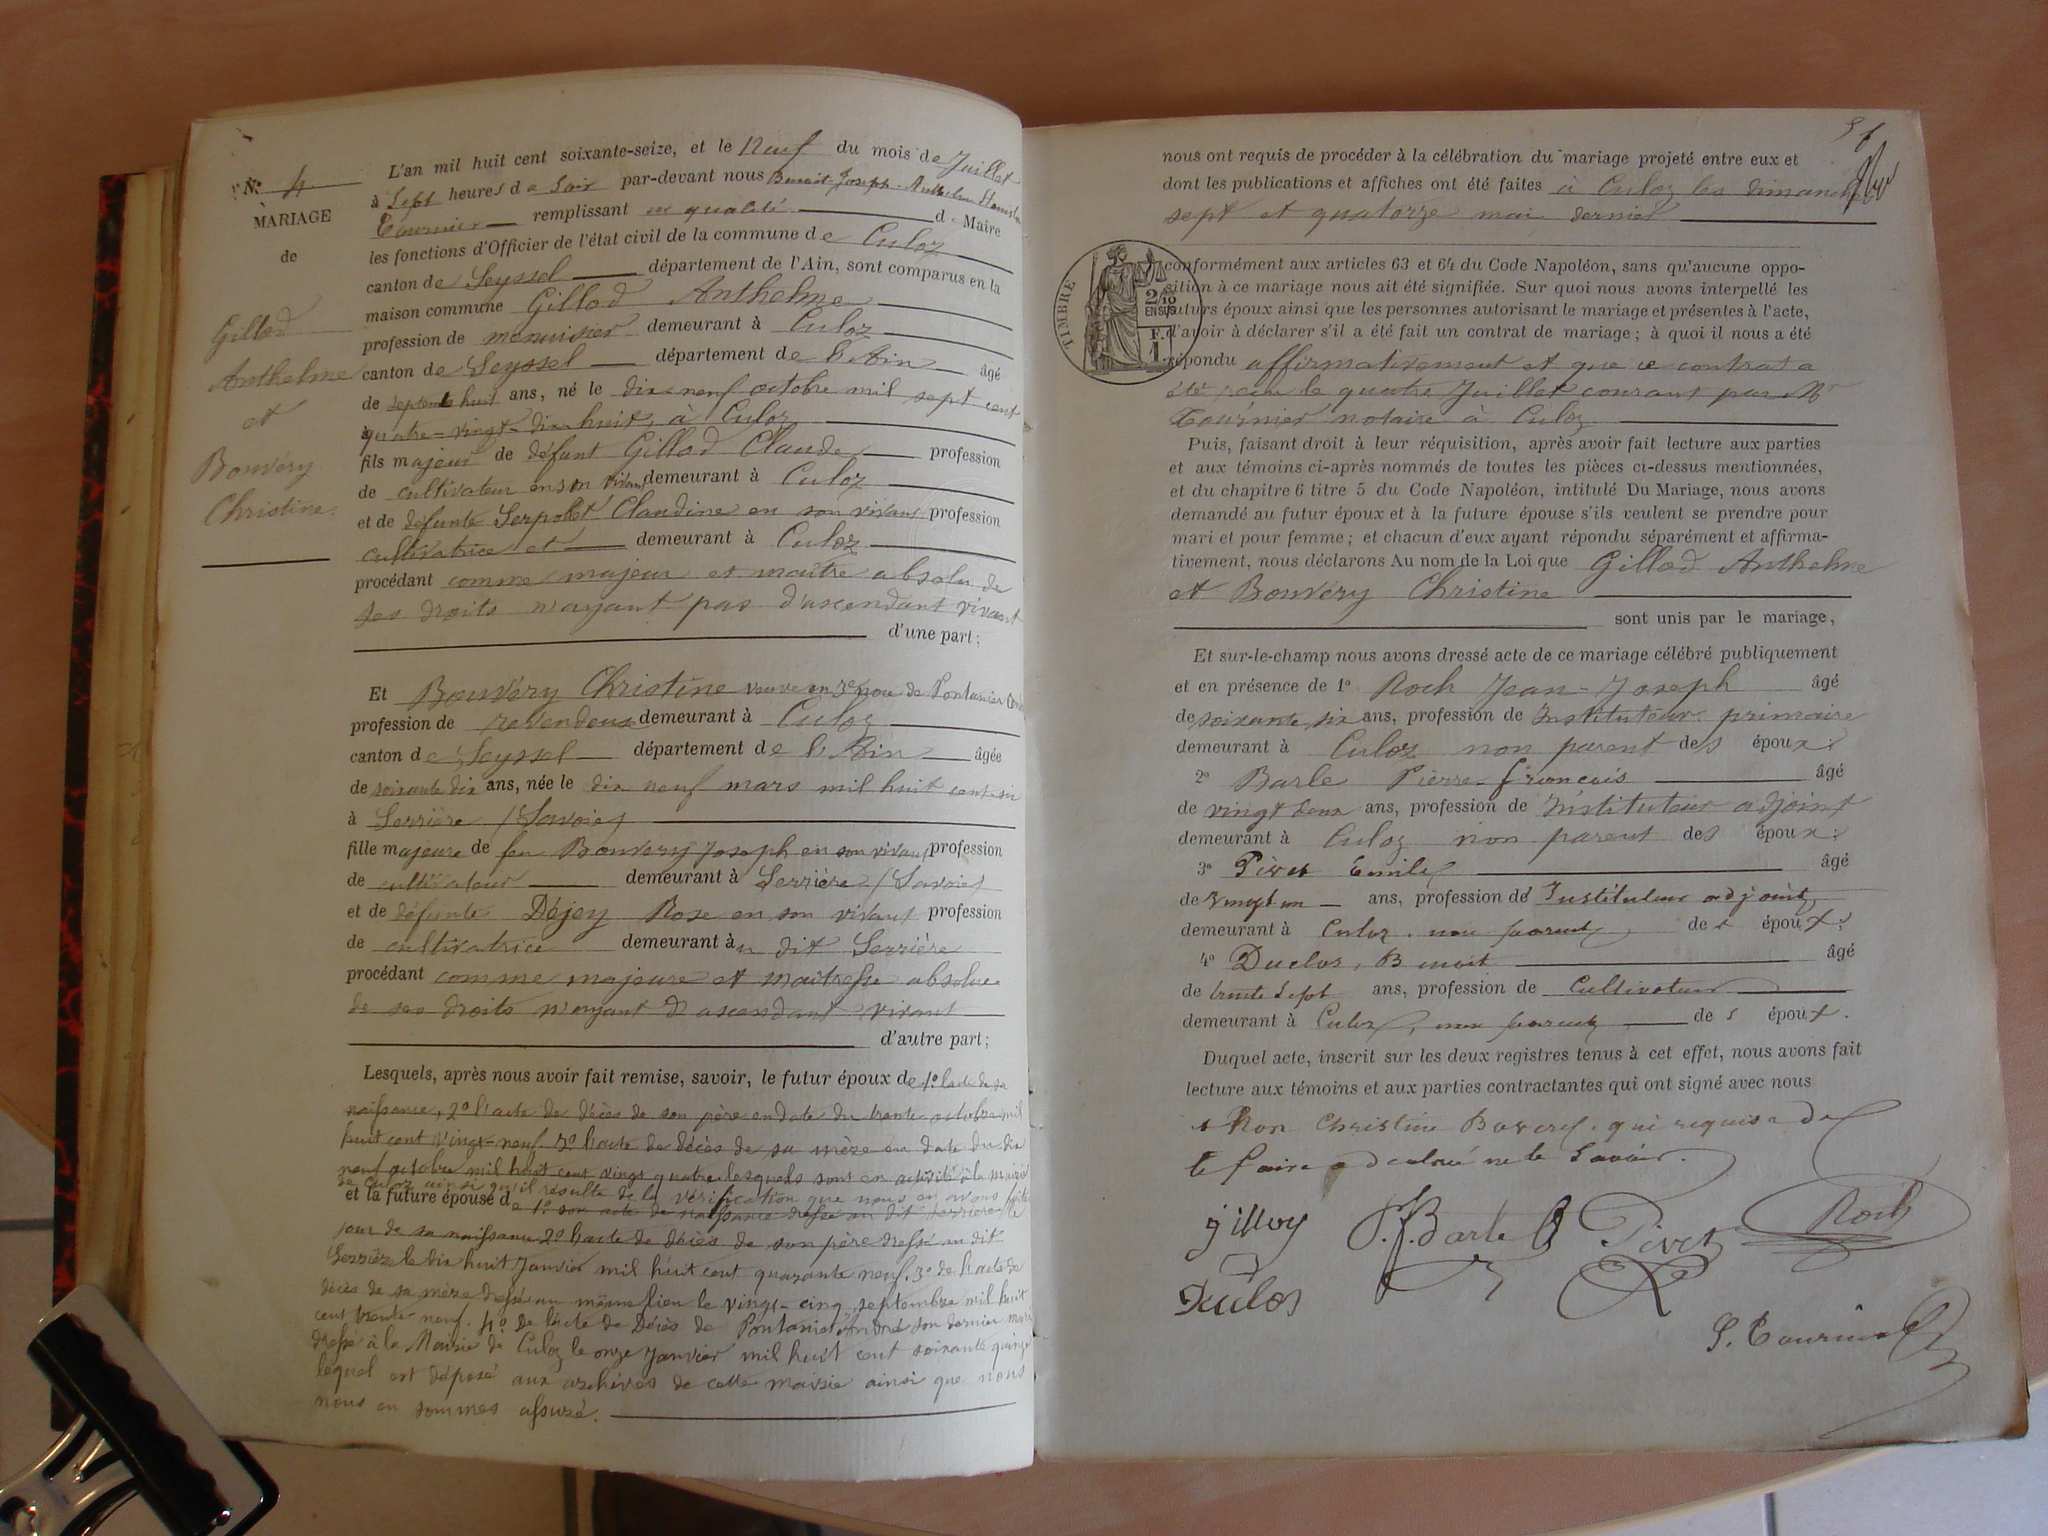 N° 4
MARIAGE
de
Gillod
Anthelme
et
Bouvéry
Christine
L'an mil huit cent soixante-seize, et le Neuf du mois de Juillet
à Sept heures de Soir par-devant nous Benoit-Joseph-Anthelme Stanislas
Tournier remplissant en qualité de Maire
les fonctions d'Officier de l'état civil de la commune de Culoz
canton de Seyssel département de l'Ain, sont comparus en la
maison commune Gillod Anthelme
profession de menuisier demeurant à Culoz
canton de Seyssel département de l'Ain âgé
de septante huit ans, né le dix-neuf octobre mil sept cent
quatre-vingt-dix huit, à Culoz
fils majeur de défunt Gillod Claude profession
de cultivateur en son vivant demeurant à Culoz
et de défunte Serpollet Claudine en son vivant profession
cultivatrice et demeurant à Culoz
procédant comme majeur et maître absolu de
ses droits n'ayant pas d'ascendant vivant
d'une part;
Et Bouvéry Christine veuve en 3e nou de Pontanier
profession de revendeuse demeurant à Culoz
canton de Seyssel département de l'Ain âgée
de soixante dix ans, née le dix neuf mars mil huit cent six
à Serrière (Savoie)
fille majeure de feu Bouvery Joseph en son vivant profession
de cultivateur demeurant à Serrière (Savoie)
et de défunte Déjey Rose en son vivant profession
de cultivatrice demeurant à u dit Serrière
procédant comme majeure et maitresse absolue
de ses droits n'ayant d'ascendant vivant
d'autre part;
Lesquels, après nous avoir fait remise, savoir, le futur époux de 1° l'acte de sa
naissance, 2° l'acte de décès de son père en date du trente octobre mil
huit cent vingt-neuf 3° l'acte de décès de sa mère en date du dix
neuf octobre mil huit cent vingt quatre lesquels sont en à la mairie
de Culoz ainsi qu'il résulte de la vérification que nous en avons faite
et la future épouse de 1° son acte de naissance dressé au dit Serrière le
jour de sa naissance 2° l'acte de décès de son père dressé au dit
Serrière le dix huit Janvier mil huit cent quarante neuf. 3° de l'acte de
décès de sa mère dressé au même lieu le vingt-cinq septembre mil huit
cent trente neuf. 4° de l'acte de Décès de Pontanier André son dernier mari
dressé à la Mairie de Culoz le onze Janvier mil huit cent soixante quinze
lequel est déposé aux archives de cette mairie ainsi que nous
nous en sommes assuré.
nous ont requis de procéder à la célébration du mariage projeté entre eux et
dont les publications et affiches ont été faites à Culoz les dimanches
sept et quatorze mai dernier
TIMBRE
2/10
EN SUS
F.
1.
conformément aux articles 63 et 64 du Code Napoléon, sans qu'aucune oppo-
sition à ce mariage nous ait été signifiée. Sur quoi nous avons interpellé les
futurs époux ainsi que les personnes autorisant le mariage et présentes à l'acte,
d'avoir à déclarer s'il a été fait un contrat de mariage; à quoi il nous a été
répondu affirmativement et que ce contrat a
été reçu le quatre Juillet courant par Me
Tournier notaire à Culoz
Puis, faisant droit à leur réquisition, après avoir fait lecture aux parties
et aux témoins ci-après nommés de toutes les pièces ci-dessus mentionnées,
et du chapitre 6 titre 5 du Code Napoléon, intitulé Du Mariage, nous avons
demandé au futur époux et à la future épouse s'ils veulent se prendre pour
mari et pour femme; et chacun d'eux ayant répondu séparément et affirma-
tivement, nous déclarons Au nom de la Loi que Gillod Anthelme
et Bouvéry Christine
sont unis par le mariage,
Et sur-le-champ nous avons dressé acte de ce mariage célébré publiquement
et en présence de 1° Roch Jean-Joseph âgé
de soixante six ans, profession de Instituteur primaire
demeurant à Culoz non parent des époux.
2° Barle Pierre-françois âgé
de vingt deux ans, profession de Instituteur adjoint
demeurant à Culoz non parent des époux.
3° Pivet Emile âgé
de vingt un ans, profession de Instituteur adjoint
demeurant à Culoz, non parent des époux.
4° Duclos, Benoit âgé
de trente sept ans, profession de Cultivateur
demeurant à Culoz, non parent des époux.
Duquel acte, inscrit sur les deux registres tenus à cet effet, nous avons fait
lecture aux témoins et aux parties contractantes qui ont signé avec nous
Non Christine Bovery, qui requise de
le faire a déclaré ne le savoir.
gilloy P.f. Barle Pivet Roch
Duclos
S. Tournier